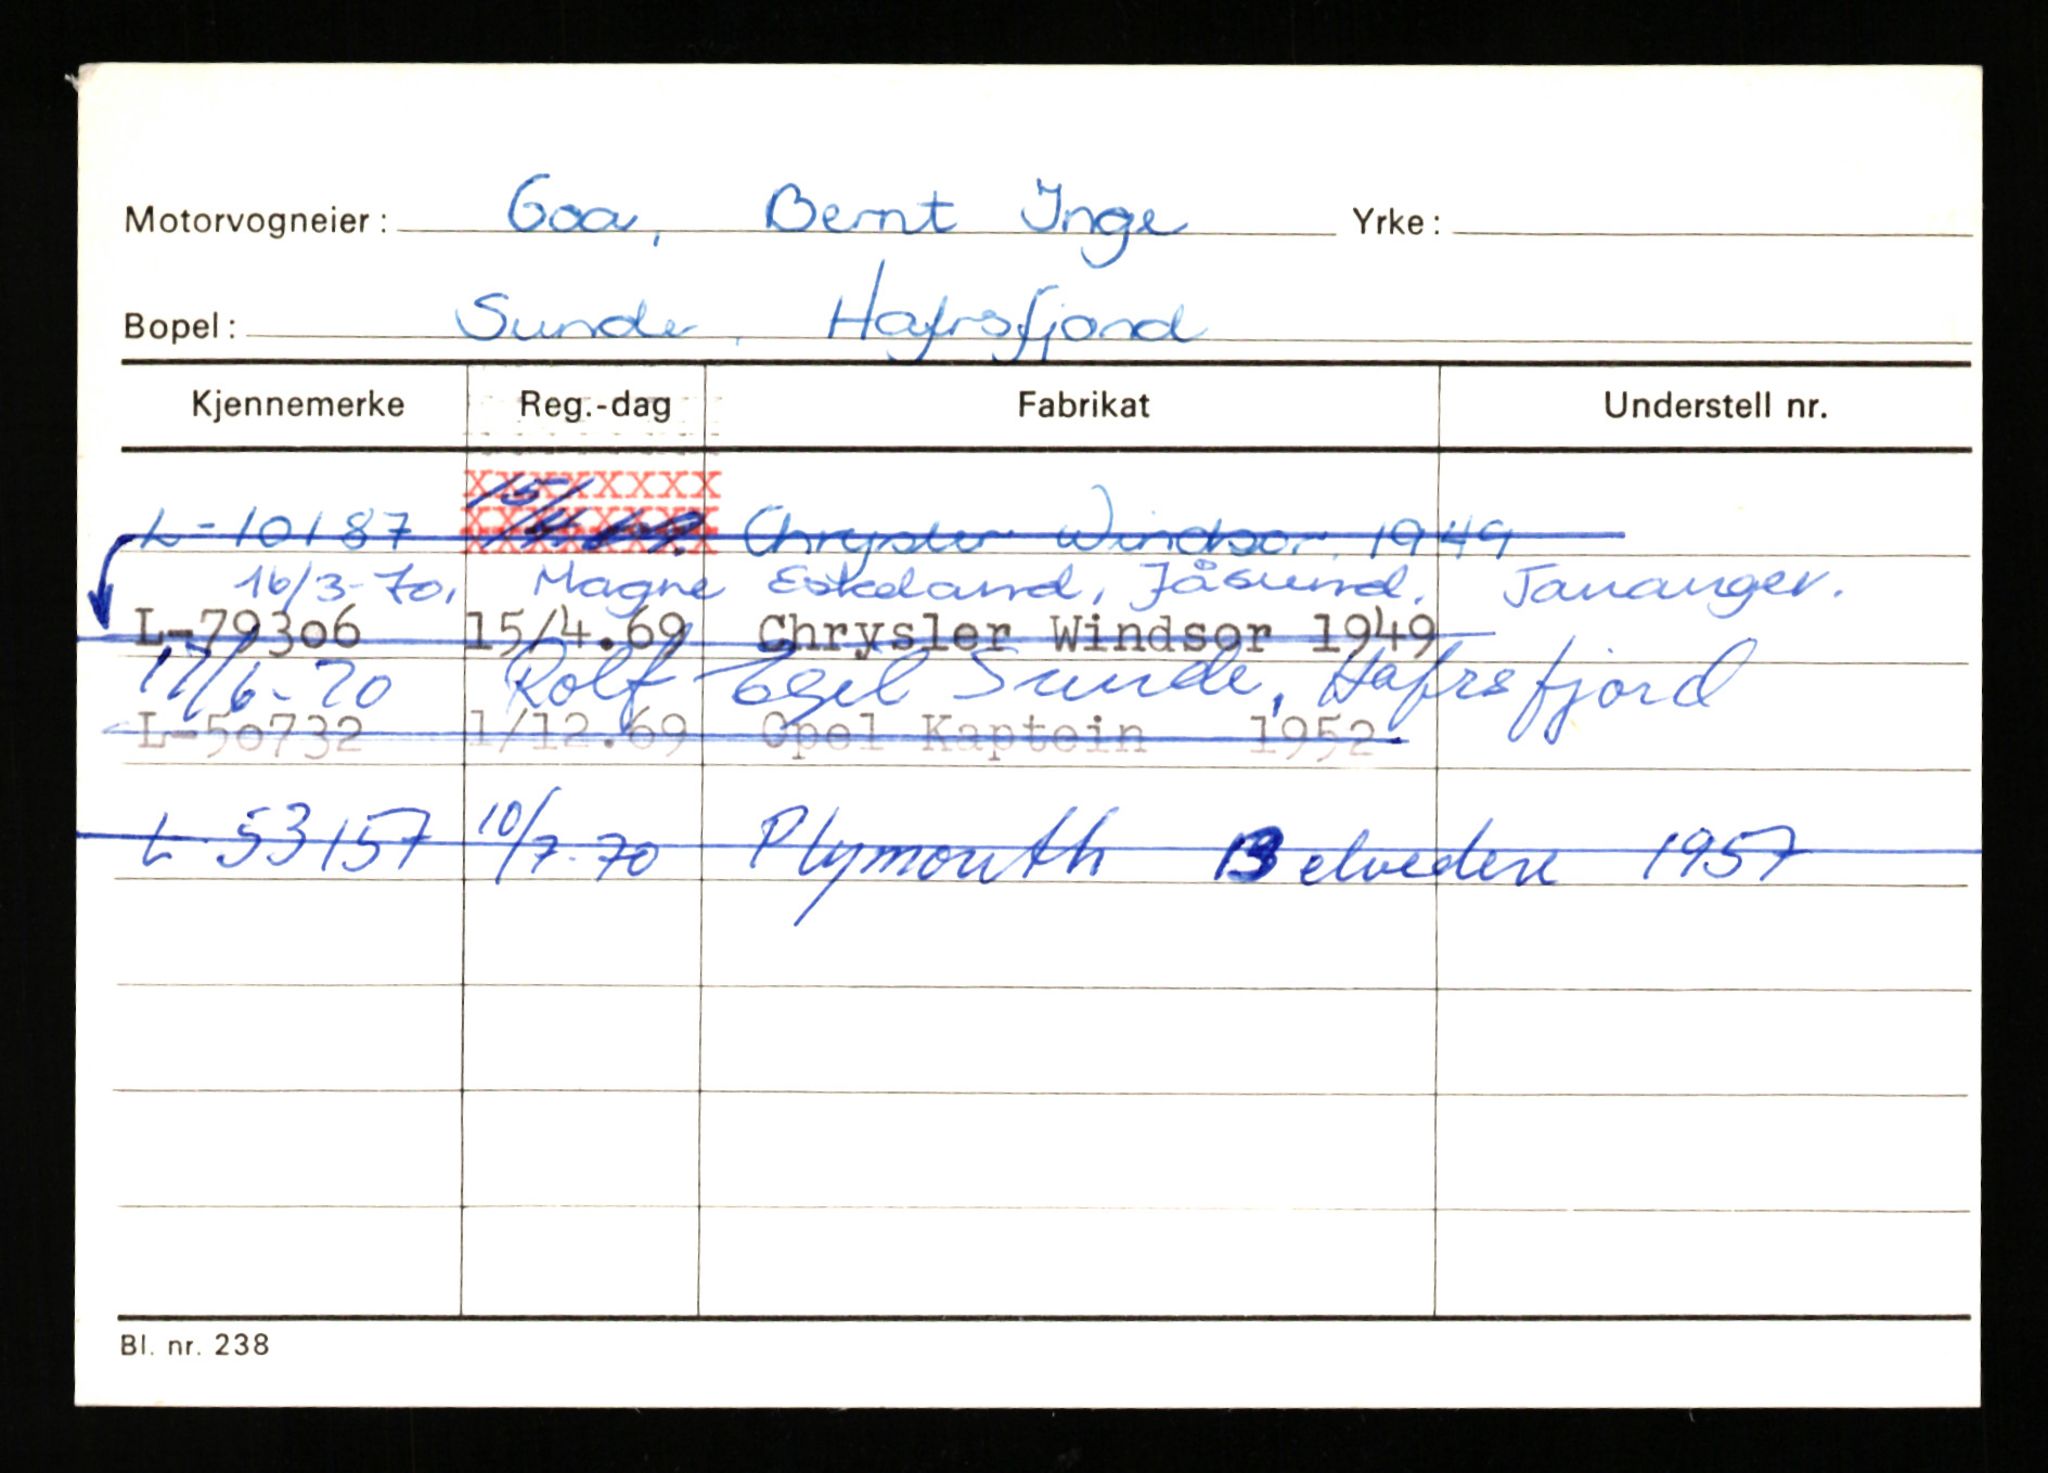 Motorvogneier: Goa, Bernt Inge Yrke:
Bopel: Sunde, Hafrsfjord
Kjennemerke Reg.-dag Fabrikat Understell nr.
XXXXXXXXX
L-10187 15/4. Chrysler Windsor 1949
16/3-70, Magne Eskeland, Jåsund, Tananger.
L-79306 15/4.69 Chrysler Windsor 1949
17/6-70 Rolf Egil Sunde, Hafrsfjord
L-50732 1/12.69 Opel Kaptein 1952.
L-53157 10/7-70 Plymouth Belvedere 1957
Bl. nr. 238